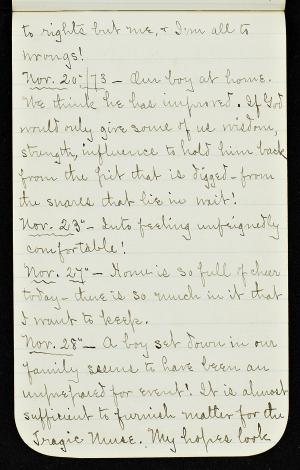 to rights but me, & I'm all to
wrongs!
Nov. 20" /73 – Our boy at home.
We think he has improved. If God
would only give some of us wisdom,
strength, influence to hold him back
from the pit that is digged – from
the snares that lie in wait!
Nov. 23" – Into feeling unfeignedly
comfortable!
Nov. 27" – Home is so full of cheer
today – there is so much in it that
I want to keep.
Nov. 28" – A boy set down in our
family seems to have been an
unprepared for event! It is almost
sufficient to furnish matter for the
Tragic Muse. My hopes look